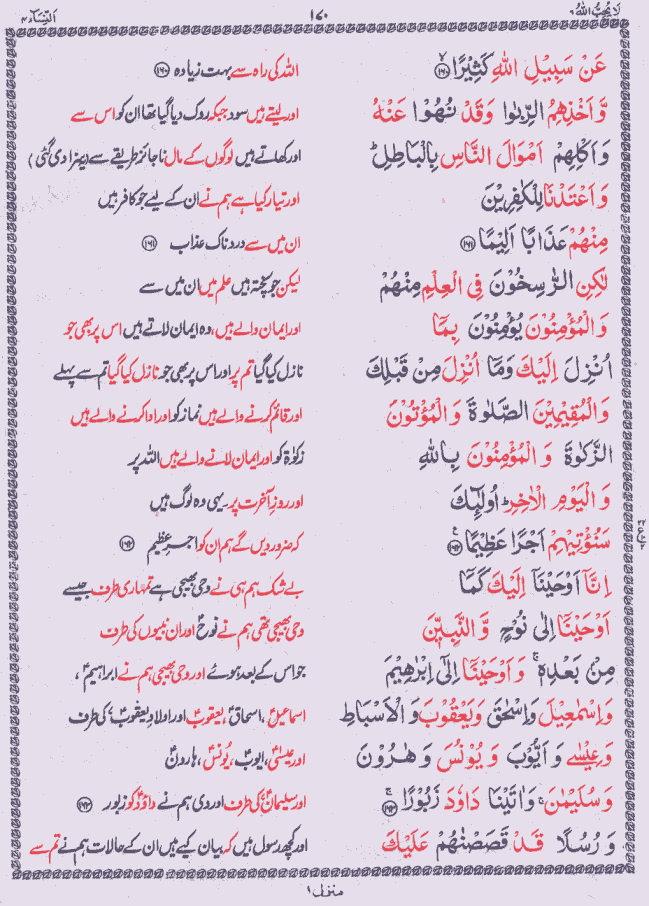 لَا يُحِبُّ اللهُ ٦ ١٤٠ اَلنِّسَآء ٤
عَنْ سَبِيْلِ اللهِ كَثِيْرًا ﴿١٦٠﴾ اللہ کی راہ سے بہت زیادہ ﴿١٦٠﴾
وَّاَخْذِهِمُ الرِّبٰوا وَقَدْ نُهُوْا عَنْهُ اور لیتے ہیں سود جبکہ روک دیا گیا تھا ان کو اس سے
وَاَكْلِهِمْ اَمْوَالَ النَّاسِ بِالْبَاطِلِ ؕ اور کھاتے ہیں لوگوں کے مال ناجائز طریقے سے (یہ سزا دی گئی)
وَاَعْتَدْنَا لِلْكٰفِرِيْنَ اور تیار کیا ہے ہم نے ان کے لیے جو کافر ہیں
مِنْهُمْ عَذَابًا اَلِيْمًا ﴿١٦١﴾ ان میں سے دردناک عذاب ﴿١٦١﴾
لٰكِنِ الرّٰسِخُوْنَ فِى الْعِلْمِ مِنْهُمْ لیکن جو پختہ ہیں علم میں ان میں سے
وَالْمُؤْمِنُوْنَ يُؤْمِنُوْنَ بِمَاۤ اور ایمان والے ہیں، وہ ایمان لاتے ہیں اس پر بھی جو
اُنْزِلَ اِلَيْكَ وَمَاۤ اُنْزِلَ مِنْ قَبْلِكَ نازل کیا گیا تم پر اور اس پر بھی جو نازل کیا گیا تم سے پہلے
وَالْمُقِيْمِيْنَ الصَّلٰوةَ وَالْمُؤْتُوْنَ اور قائم کرنے والے ہیں نماز کو اور ادا کرنے والے ہیں
الزَّكٰوةَ وَالْمُؤْمِنُوْنَ بِاللهِ زکوٰۃ کو اور ایمان لانے والے ہیں اللہ پر
وَالْيَوْمِ الْاٰخِرِ ؕ اُولٰٓئِكَ اور روزِ آخرت پر یہی وہ لوگ ہیں
سَنُؤْتِيْهِمْ اَجْرًا عَظِيْمًا ﴿١٦٢﴾ کہ ضرور دیں گے ہم ان کو اجرِ عظیم ﴿١٦٢﴾
اِنَّاۤ اَوْحَيْنَاۤ اِلَيْكَ كَمَاۤ بے شک ہم ہی نے وحی بھیجی ہے تمہاری طرف جیسے
اَوْحَيْنَاۤ اِلٰى نُوْحٍ وَّالنَّبِيّٖنَ وحی بھیجی تھی ہم نے نوحؑ اور ان نبیوں کی طرف
مِنْۢ بَعْدِهٖ ۚ وَاَوْحَيْنَاۤ اِلٰٓى اِبْرٰهِيْمَ جو اس کے بعد ہوئے اور وحی بھیجی ہم نے ابراہیمؑ،
وَاِسْمٰعِيْلَ وَاِسْحٰقَ وَيَعْقُوْبَ وَالْاَسْبَاطِ اسماعیلؑ، اسحاقؑ، یعقوبؑ اور اولادِ یعقوبؑ کی طرف
وَعِيْسٰى وَاَيُّوْبَ وَيُوْنُسَ وَهٰرُوْنَ اور عیسیٰؑ، ایوبؑ، یونسؑ، ہارونؑ
وَسُلَيْمٰنَ ۚ وَاٰتَيْنَا دَاوٗدَ زَبُوْرًا ﴿١٦٣﴾ اور سلیمانؑ کی طرف اور دی ہم نے داوٗدؑ کو زبور ﴿١٦٣﴾
وَرُسُلًا قَدْ قَصَصْنٰهُمْ عَلَيْكَ اور کچھ رسول ہیں کہ بیان کیے ہیں ان کے حالات ہم نے تم سے
منزل ١